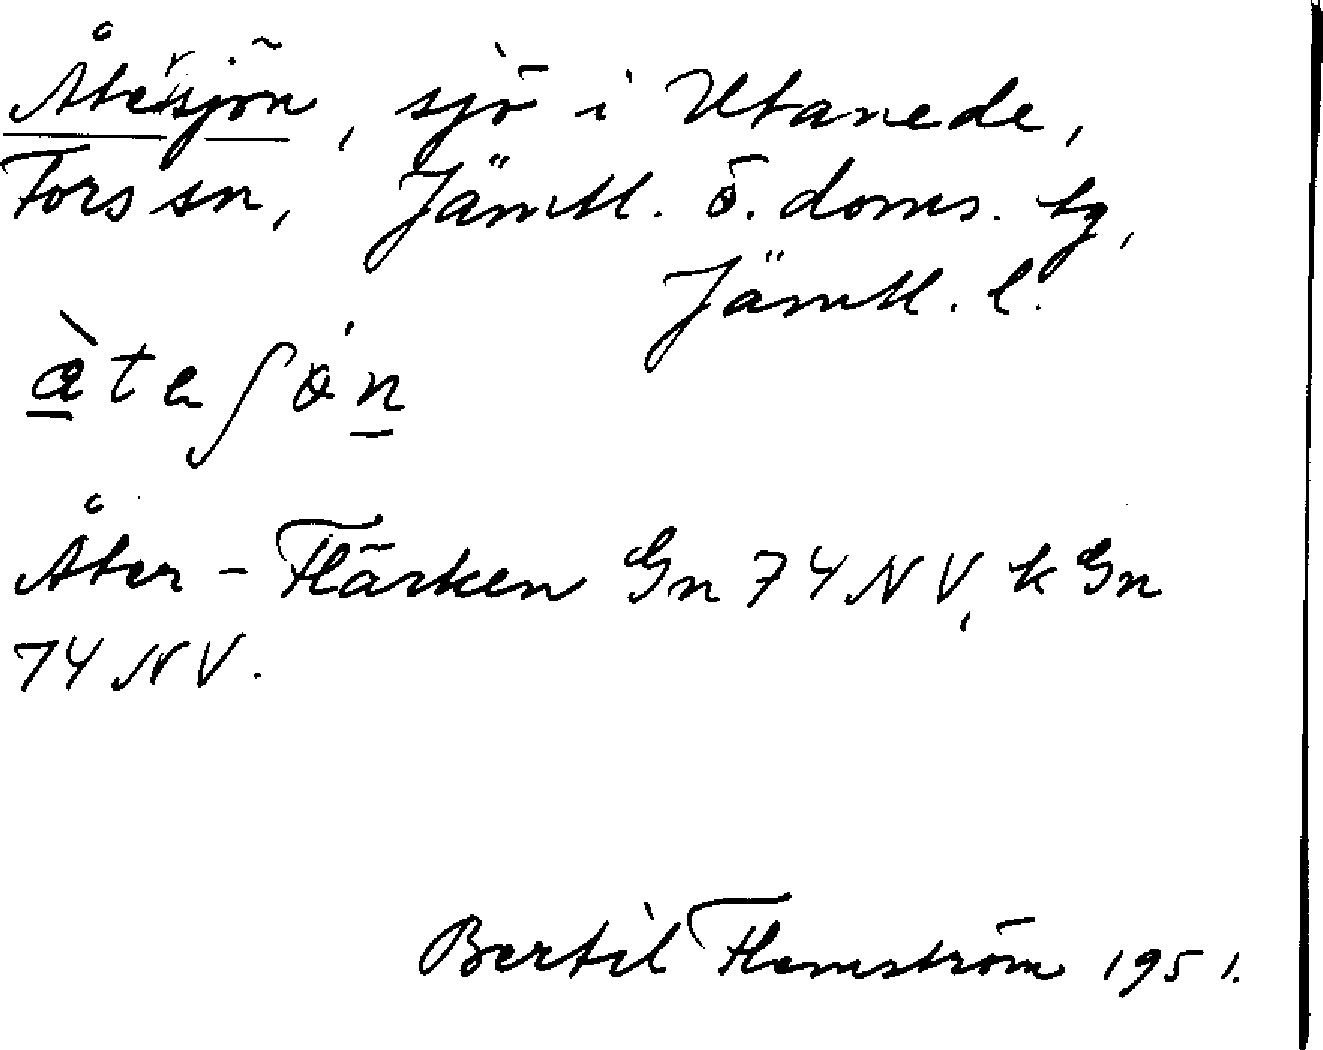 Återsjön, sjö i Utanede,
Fors sn, Jämtl. ö. doms. tg,
Jämtl. l.
Åter-Flärken Gn 74 NV, k Gn
74 NV.
Bertil Flemström 1951.